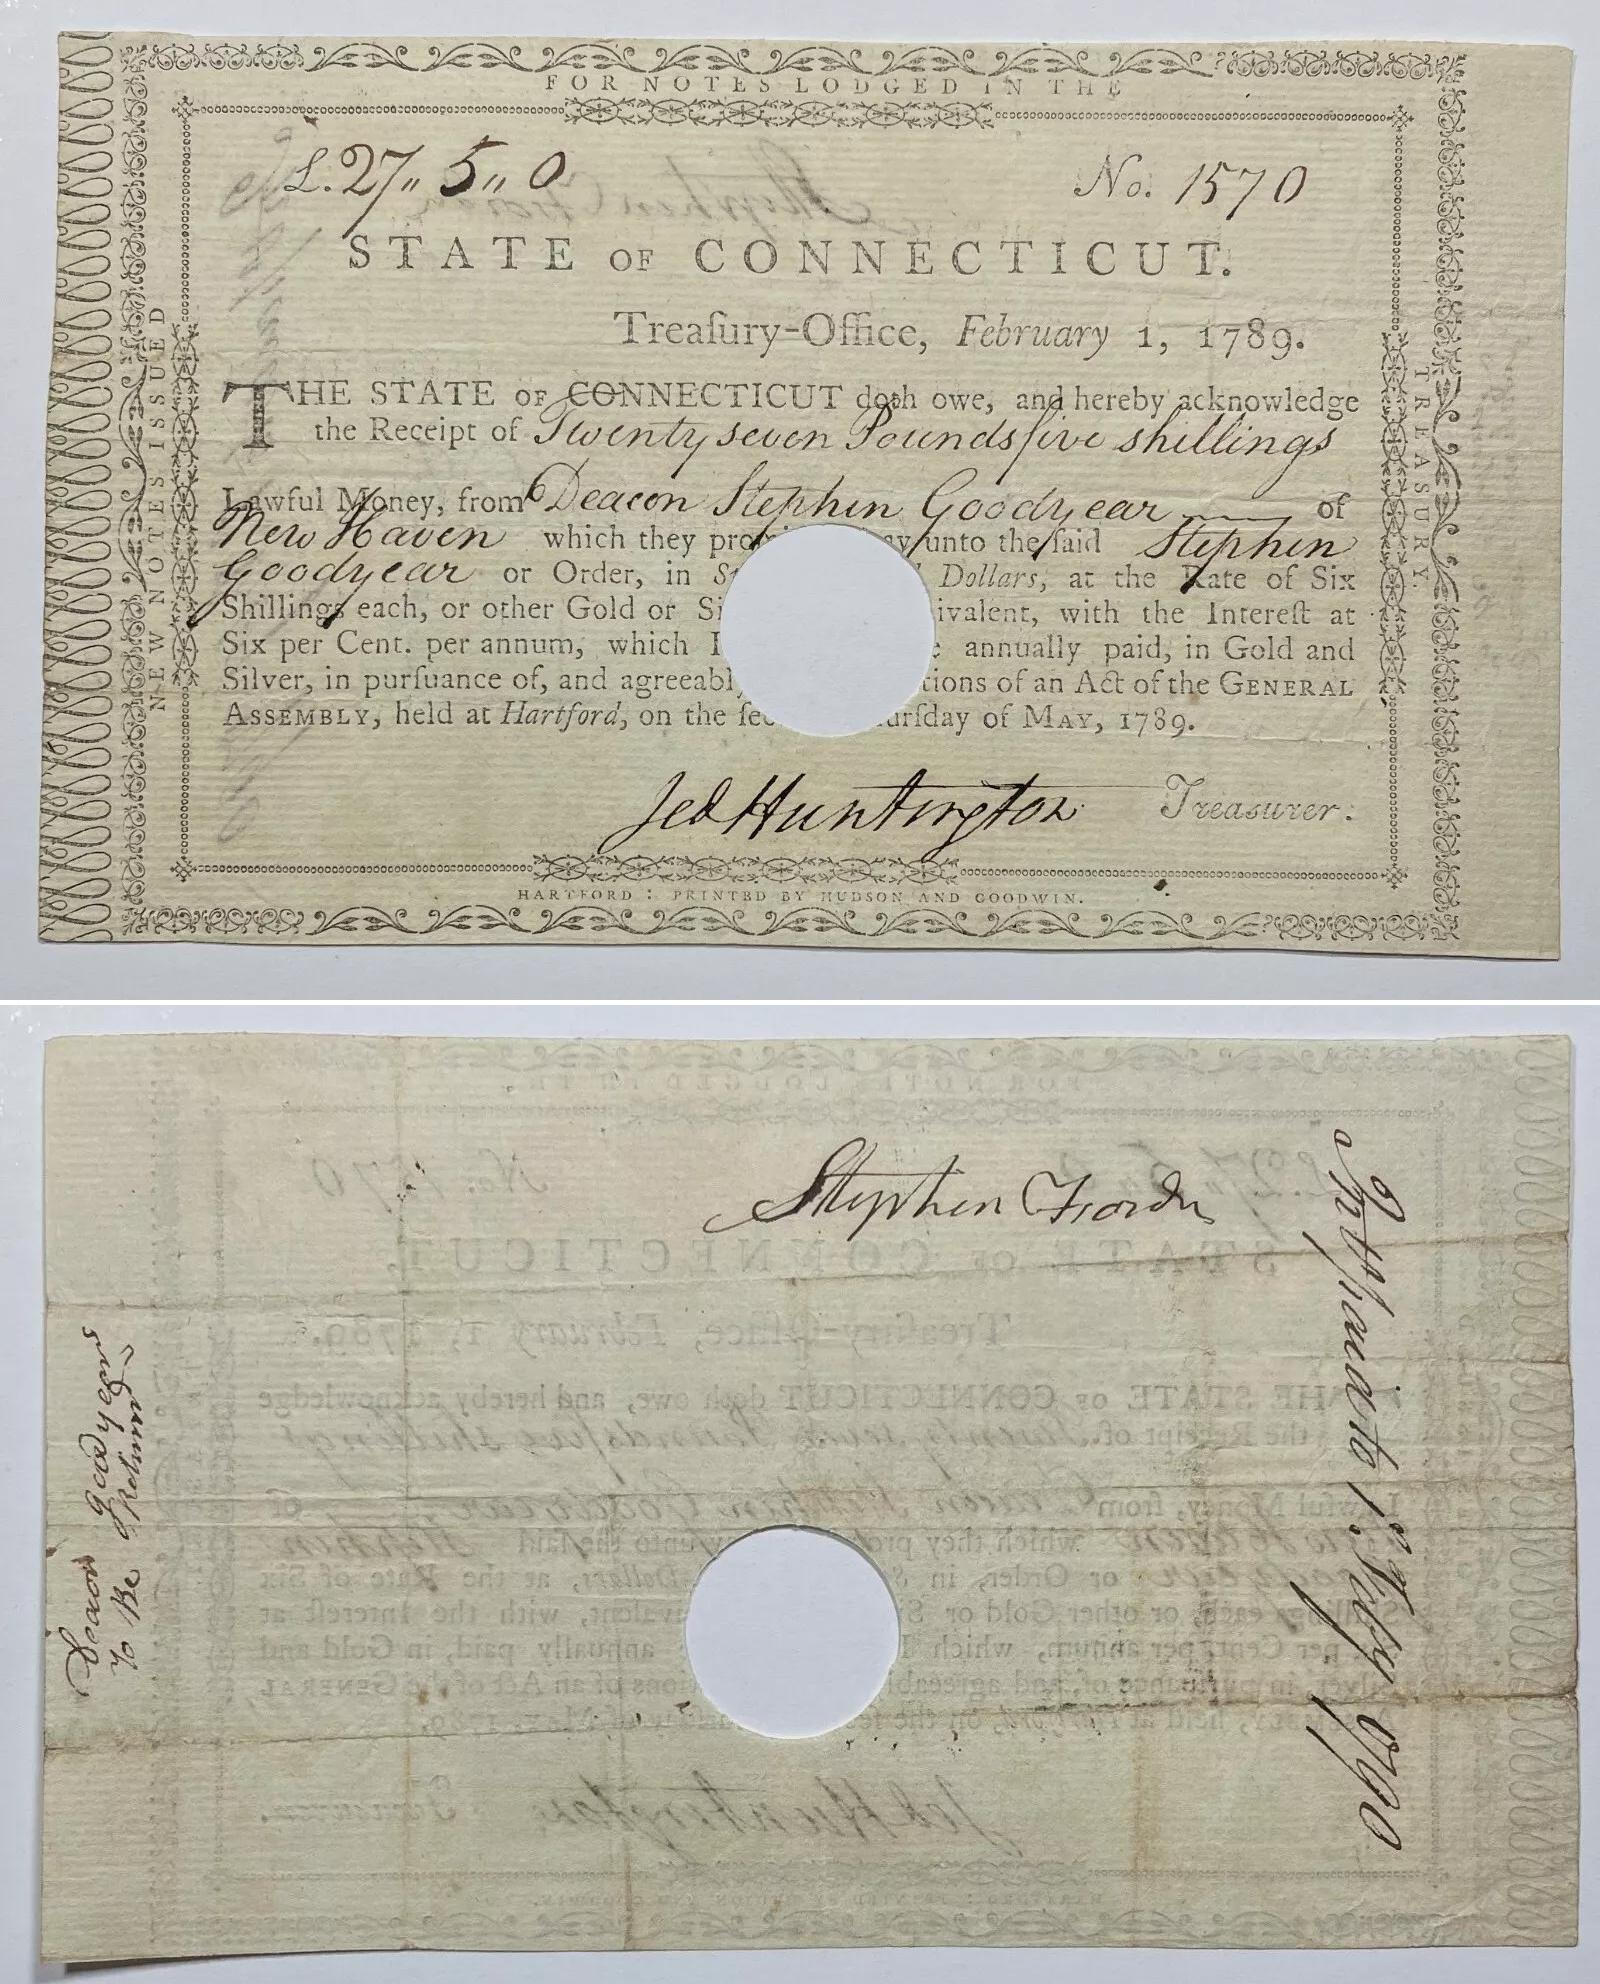 FOR NOTES LODGED IN THE
TREASURY.
NEW NOTES ISSUED
£. 27,, 5,, 0
No. 1570
STATE OF CONNECTICUT.
Treaſury-Office, February 1, 1789.
THE STATE OF CONNECTICUT doth owe, and hereby acknowledge
the Receipt of Twenty seven Pounds five shillings
Lawful Money, from Deacon Stephen Goodyear of
New Haven which they pro ay unto the ſaid Stephen
Goodyear or Order, in S Dollars, at the Rate of Six
Shillings each, or other Gold or Si ivalent, with the Intereſt at
Six per Cent. per annum, which I annually paid, in Gold and
Silver, in purſuance of, and agreeabl tions of an Act of the GENERAL
ASSEMBLY, held at Hartford, on the ſec urſday of MAY, 1789.
Jed Huntington Treasurer.
HARTFORD: PRINTED BY HUDSON AND GOODWIN.
Stephen
Deacon goodyears
to Be Returnd
Intt paid to 1st Feby 1790